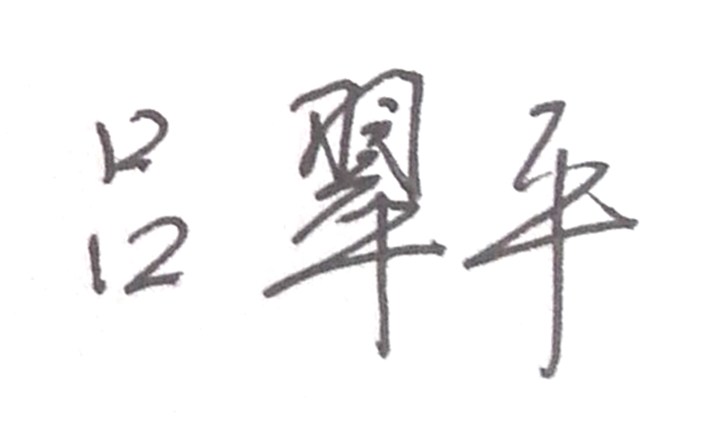 吕翠平